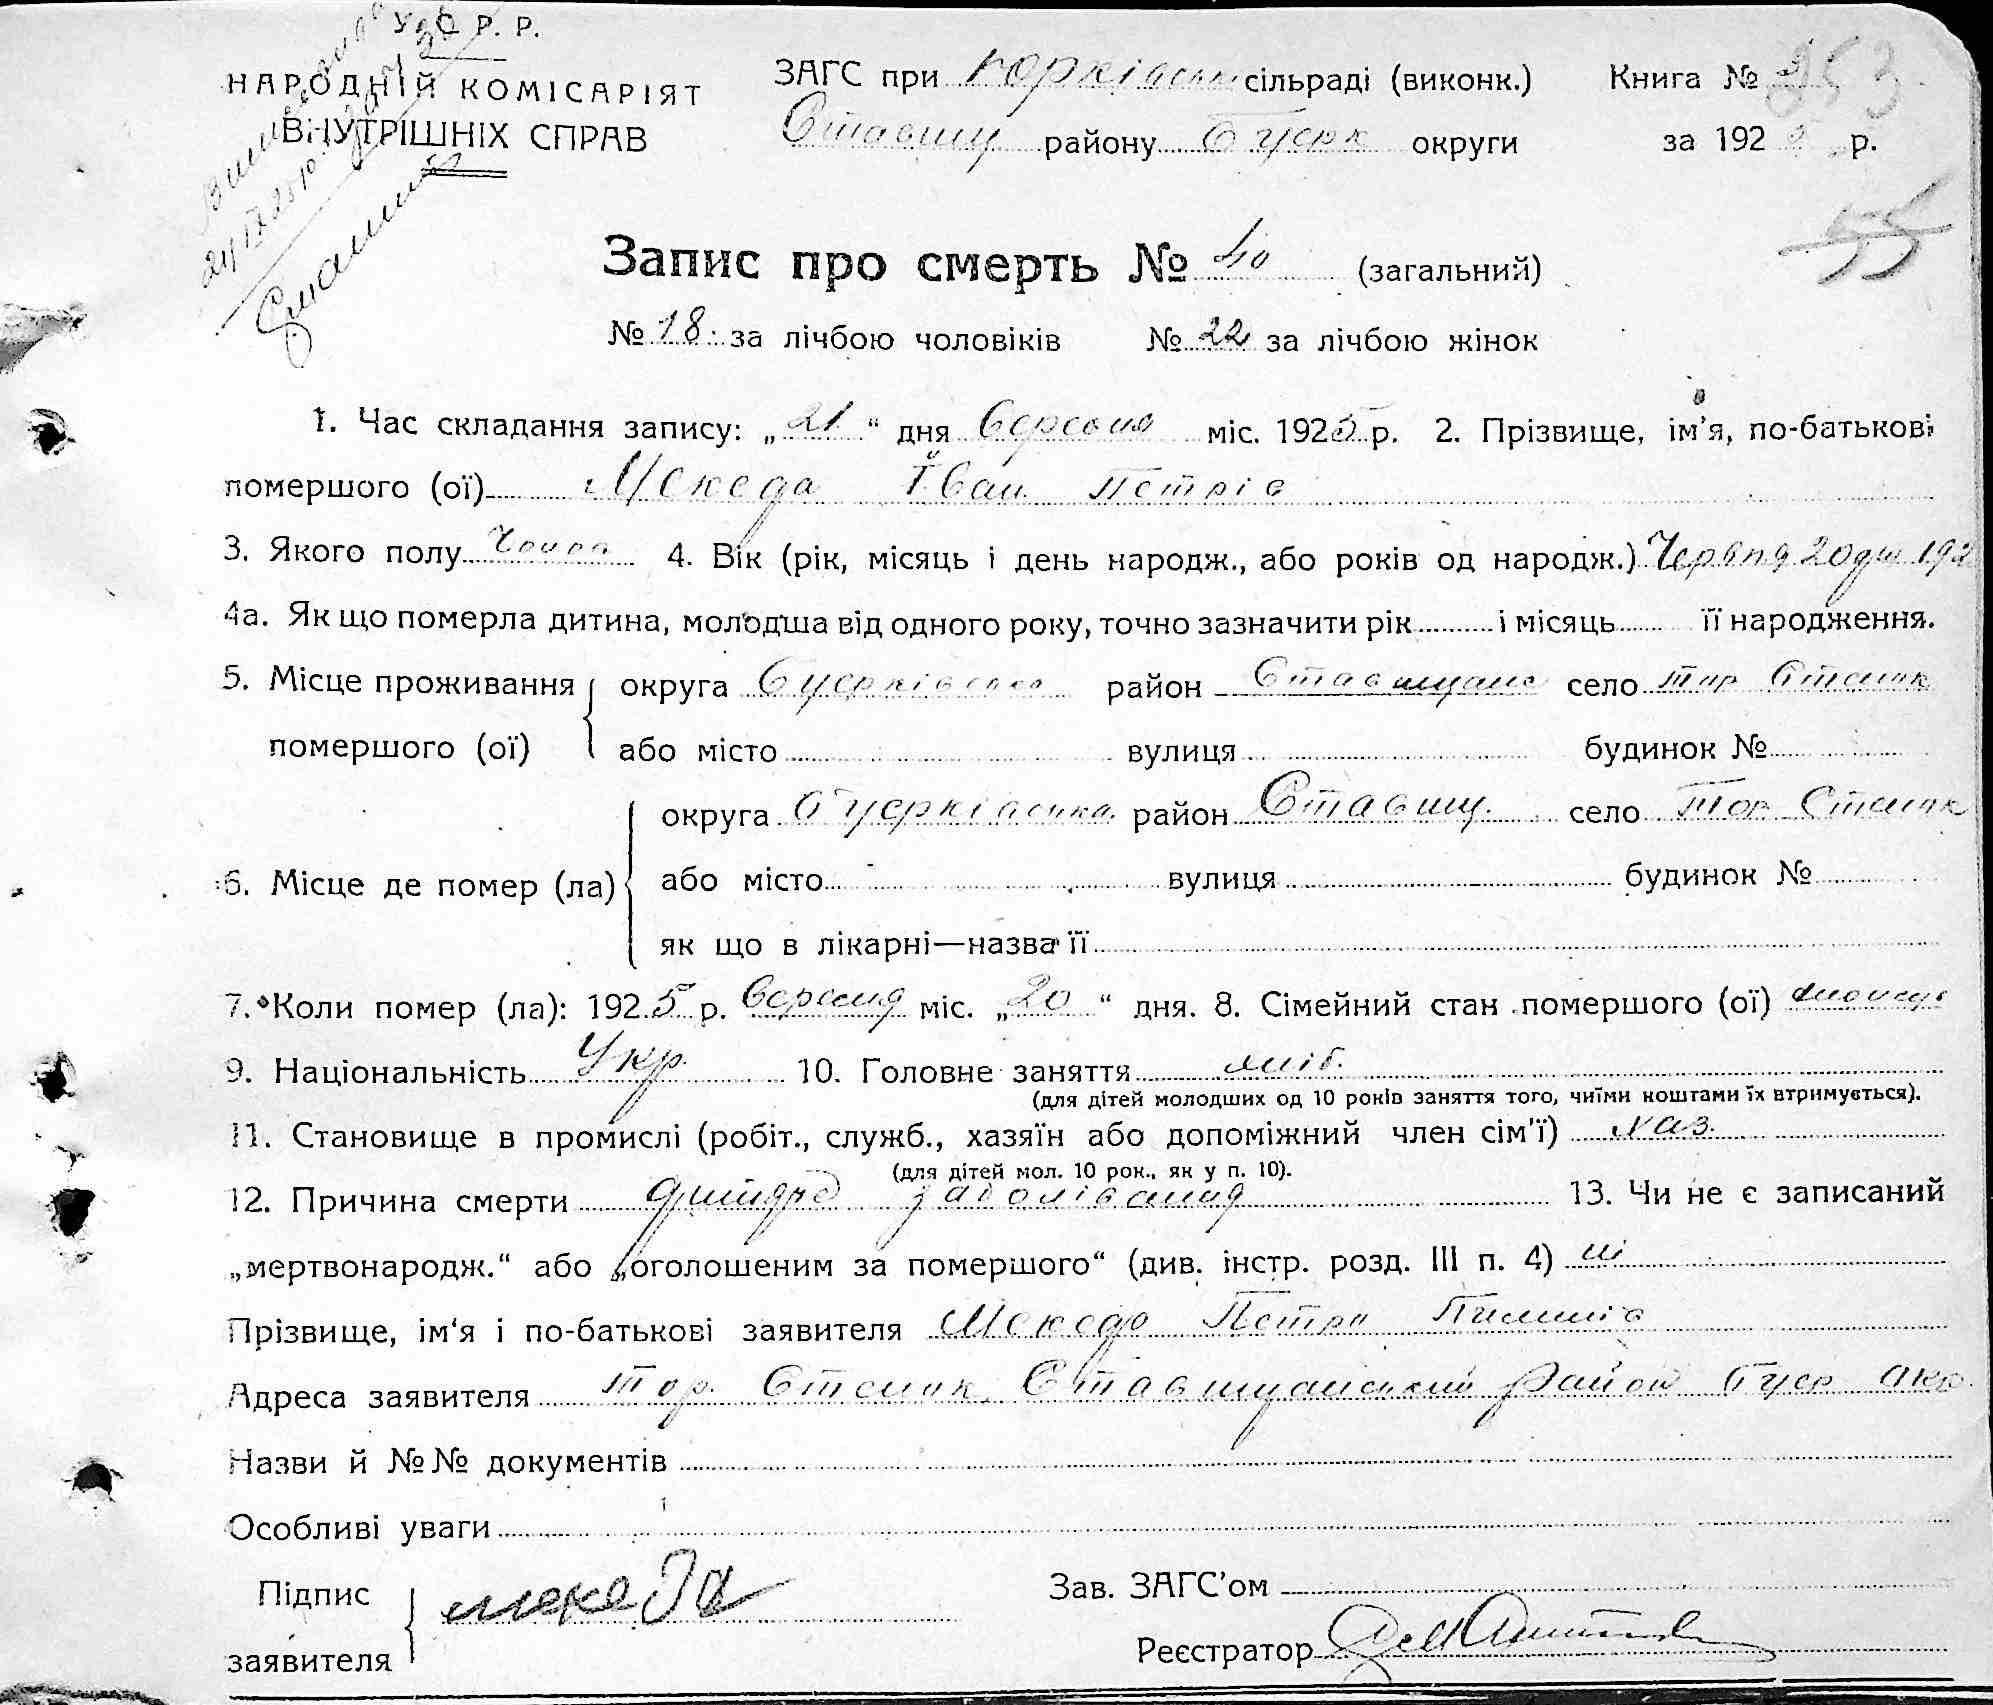 У. С. Р. Р.
НАРОДНІЙ КОМІСАРІЯТ
ВНУТРІШНІХ СПРАВ
ЗАГС при Юрківськ сільраді (виконк.) Книга № 353
Ставищ району Буцрк округи за 192 р.
55
Запис про смерть № 40 (загальний)
№ 18 за лічбою чоловіків № 22 за лічбою жінок
1. Час складання запису: „21“ дня Вересня міс. 1925 р. 2. Прізвище, ім'я, по-батькові
помершого (ої) Мекеда Іван Петрів
3. Якого полу Чолов 4. Вік (рік, місяць і день народж., або років од народж.) Червня 20 дня 192
4а. Як що померла дитина, молодша від одного року, точно зазначити рік і місяць її народження.
5. Місце проживання округа район село
помершого (ої) або місто вулиця будинок №
округа район Ставищ. село
6. Місце де помер (ла) або місто вулиця будинок №
як що в лікарні—назва її
7. Коли помер (ла): 1925 р. вересня міс. „20“ дня. 8. Сімейний стан помершого (ої)
9. Національність Укр. 10. Головне заняття хліб.
(для дітей молодших од 10 років заняття того, чиїми коштами їх втримується).
11. Становище в промислі (робіт., служб., хазяїн або допоміжний член сім'ї) хаз.
(для дітей мол. 10 рок., як у п. 10).
12. Причина смерти заболівання 13. Чи не є записаний
„мертвонародж.“ або „оголошеним за помершого“ (див. інстр. розд. III п. 4) ні
Прізвище, ім'я і по-батькові заявителя Мекеда Петро Пилипів
Адреса заявителя район
Назви й №№ документів
Особливі уваги
Підпис
заявителя
мекеда
Зав. ЗАГС'ом
Реєстратор